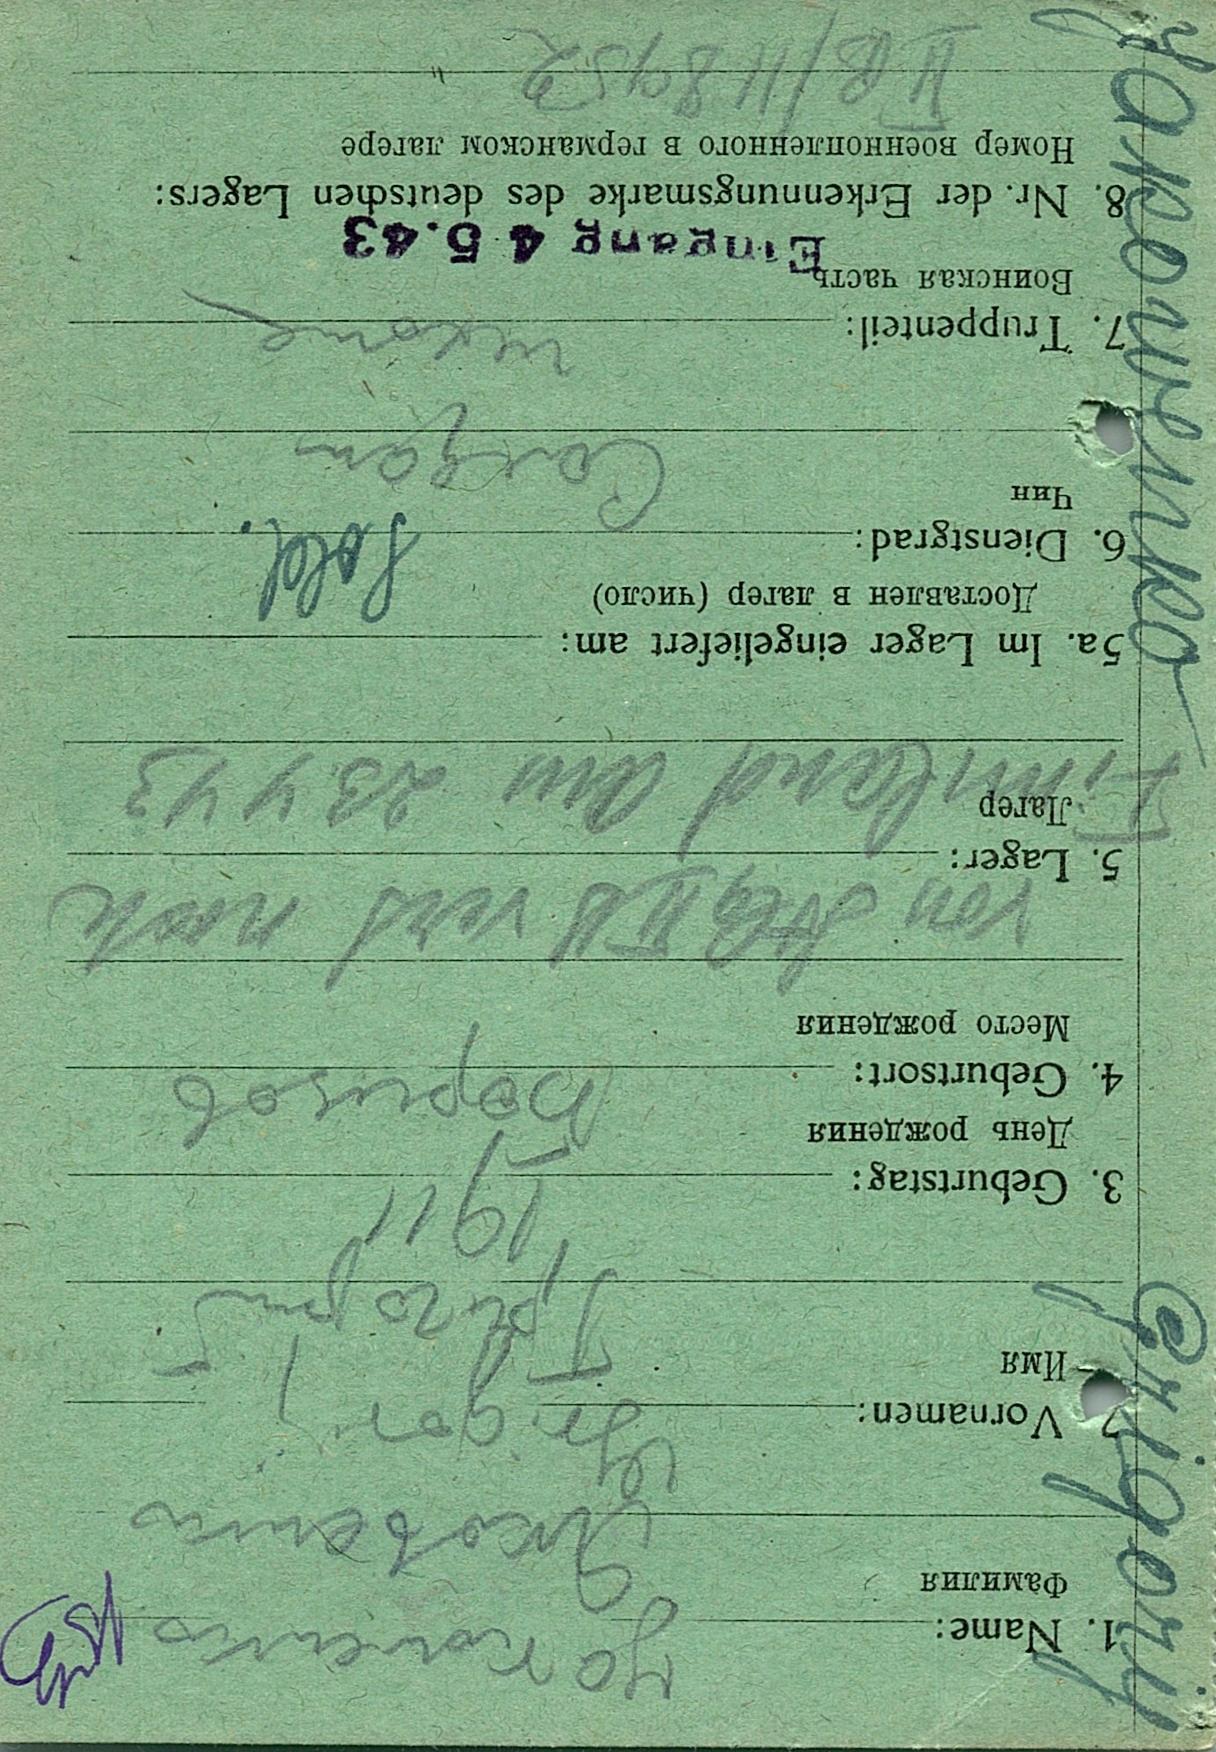 Jakowenko Grigorij
1. Name: Jakowenko
Фамилия Яковенко
2. Vornamen: Grigorij
Имя Григорий
1911
3. Geburtstag:
День рождения
4. Geburtsort: Борисов
Место рождения
von II B nach
5. Lager:
Лагер
Finnland am 23.4.43
5a. Im Lager eingeliefert am:
Доставлен в лагер (число)
6. Dienstgrad: Sold.
Чин Солдат
7. Truppenteil:
Воинская часть
Eingang 4 5.43
8. Nr. der Erkennungsmarke des deutschen Lagers:
Номер военнопленного в германском лагере
II B/118952